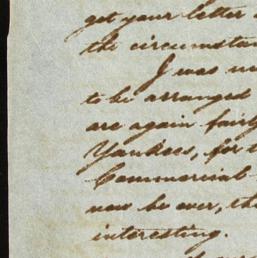 get your letter
the circumstan
I was
to be arranged
are again fairly
Yankees, for t
Commercial
now be over, th
interesting.